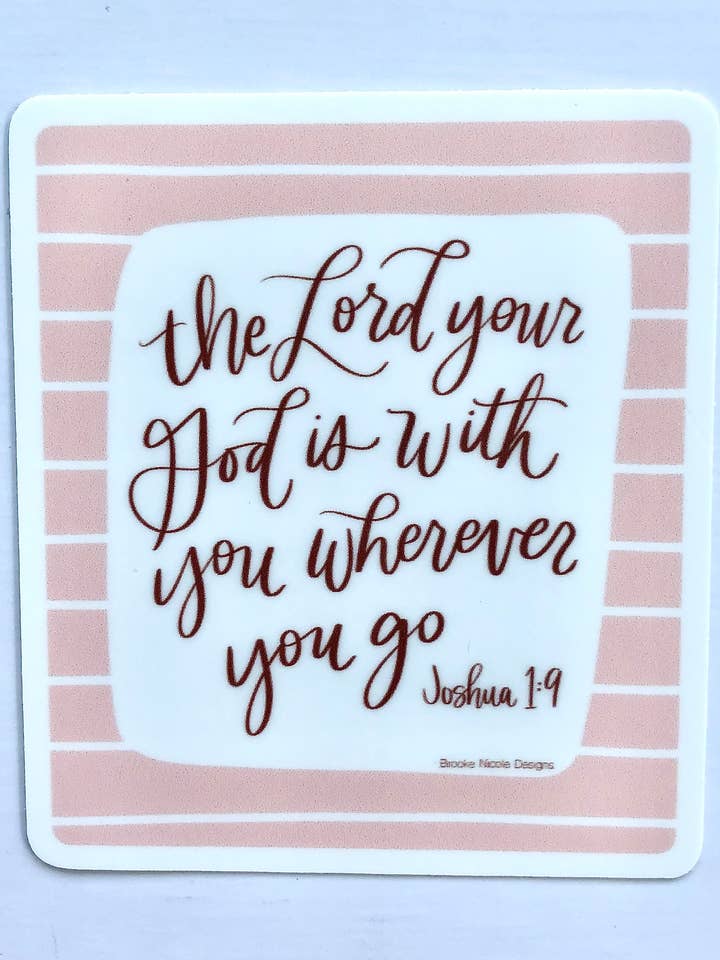 the Lord your
God is with
you wherever
you go
Joshua 1:9
Brooke Nicole Designs